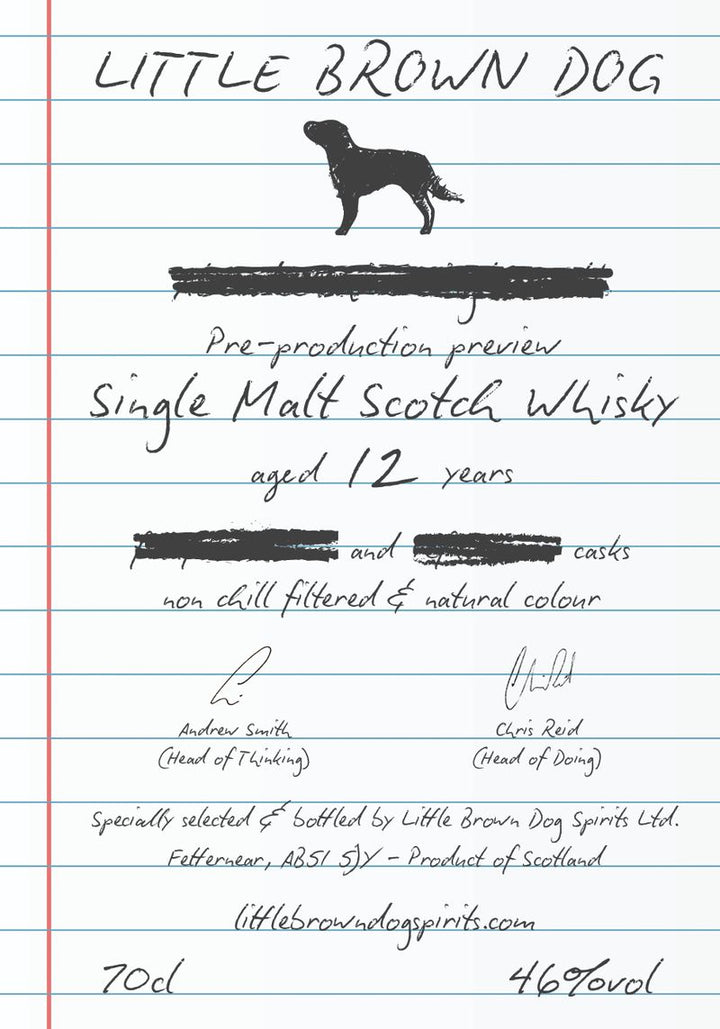 LITTLE BROWN DOG
Pre-production preview
Single Malt Scotch Whisky
aged 12 years
and casks
non chill filtered & natural colour
Andrew Smith Chris Reid
(Head of Thinking) (Head of Doing)
Specially selected & bottled by Little Brown Dog Spirits Ltd.
Fetternear, AB51 5JY - Product of Scotland
littlebrowndogspirits.com
70cl 46%vol